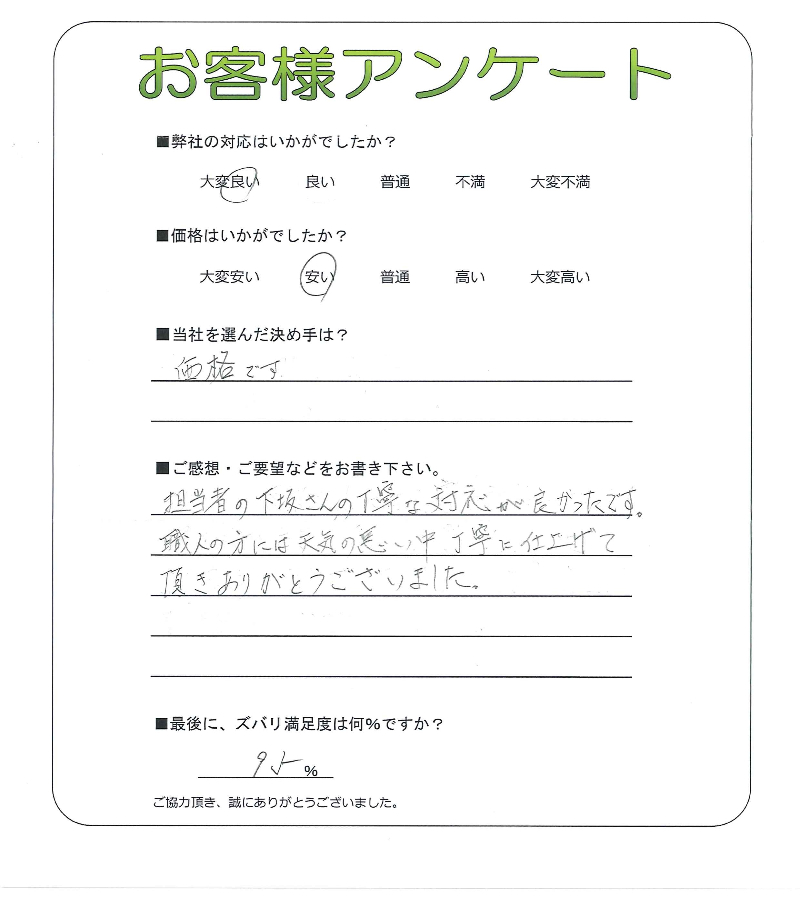 お客様アンケート
■弊社の対応はいかがでしたか？
大変良い 良い 普通 不満 大変不満
■価格はいかがでしたか？
大変安い 安い 普通 高い 大変高い
■当社を選んだ決め手は？
価格です
■ご感想・ご要望などをお書き下さい。
担当者の下坂さんの丁寧な対応が良かったです。
職人の方には天気の悪い中丁寧に仕上げて
頂きありがとうございました。
■最後に、ズバリ満足度は何%ですか？
95%
ご協力頂き、誠にありがとうございました。